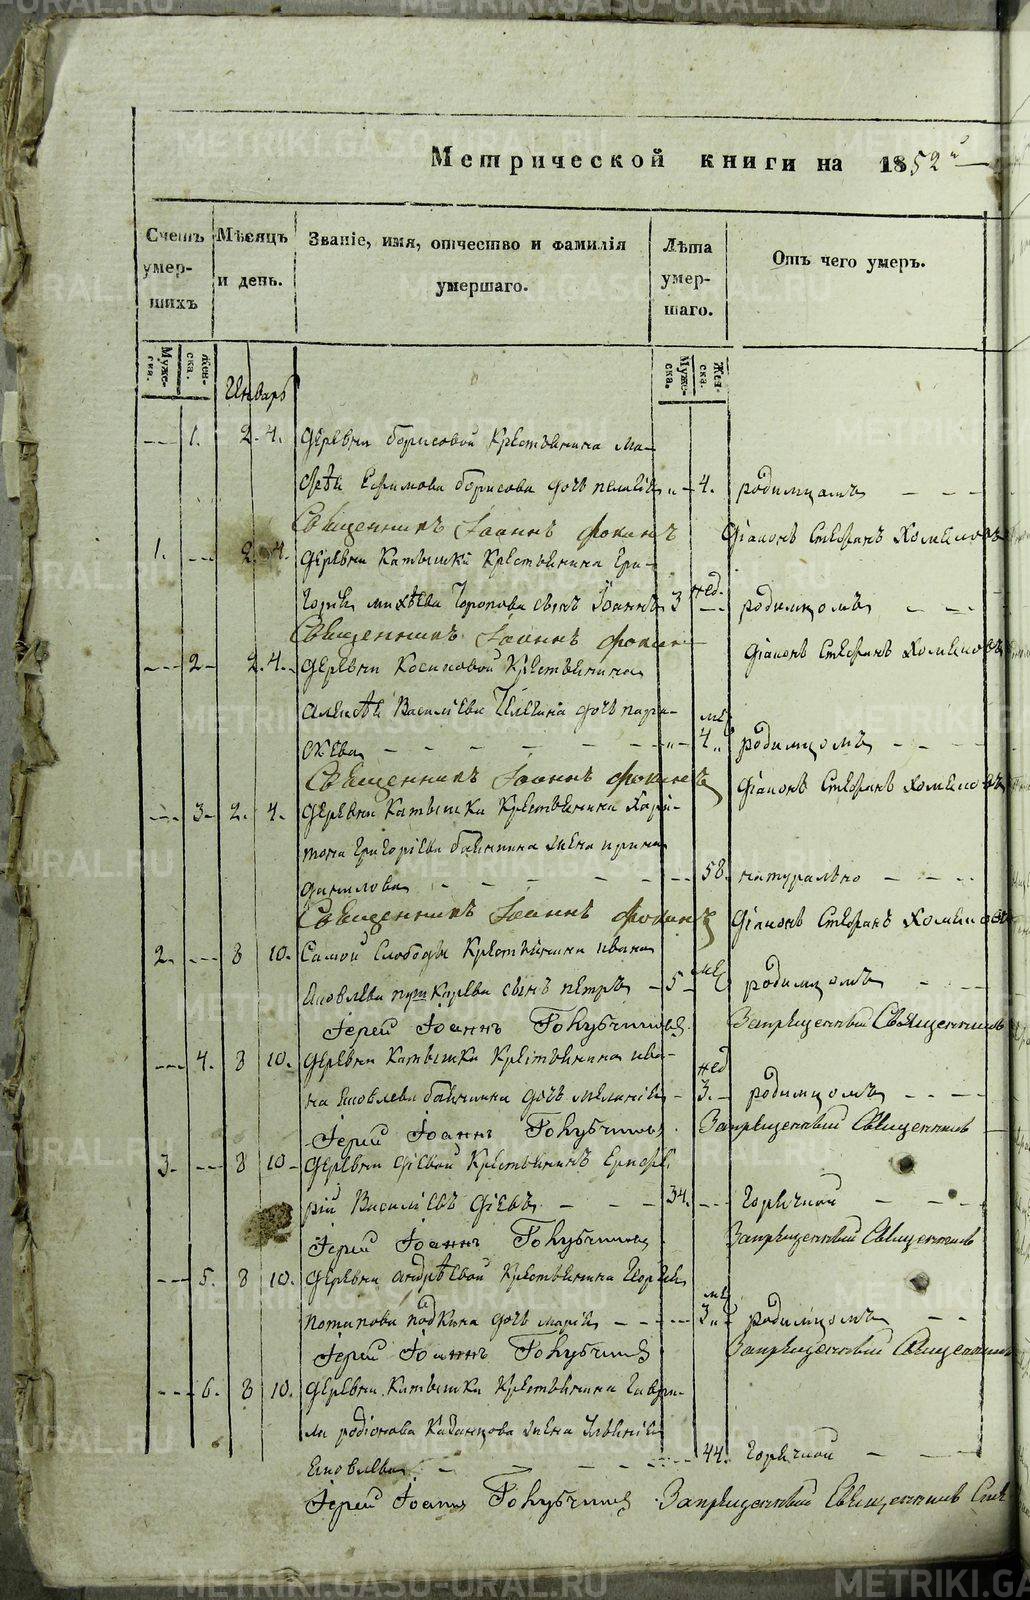 Метрической книги на 1852й
Счетъ умер- шихъ
Мѣсяцъ и день.
Званіе, имя, отчество и фамилія умершаго.
Лѣта умер- шаго.
Отъ чего умеръ.
Муже- ска.
Жен- ска.
Муже- ска.
Жен- ска.
Январь
1. 2. 4. Деревни Борисовой Крестьянина
Ефимова Борисова дочь Пелагія 4. родимцомъ
Священникъ Іоаннъ Фокинъ Діаконъ Стефанъ Хомяковъ
1. 2. 4. Деревни Катышки Крестьянина Гри-
горія Михѣева Торопова сынъ Іоаннъ 3 нед. родимцомъ
Священникъ Іоаннъ Фокинъ Діаконъ Стефанъ Хомяковъ
2 2. 4. Деревни Косиковой Крестьянина
Алексѣя Василіева дочь Парас-
кева 4 мѣ родимцомъ
Священникъ Іоаннъ Фокинъ Діаконъ Стефанъ Хомяковъ
3. 2. 4. Деревни Катышки Крестьянина Хари-
тона Григоріева жена Ирина
Данилова 58. натурально
Священникъ Іоаннъ Фокинъ Діаконъ Стефанъ Хомяковъ
2. 8 10. Самой Слободы Крестьянина Ивана
Яковлева Пушкарева сынъ Петръ 5 мѣ родимцомъ
Іерей Іоаннъ Голубчиковъ Запрещенный Священникъ
4. 8 10. Деревни Катышки Крестьянина Ива-
на Яковлева дочь Меланія 3. нед родимцомъ
Іерей Іоаннъ Голубчиковъ Запрещенный Священникъ
3. 8 10 Деревни Діевой Крестьянинъ
рій Василіевъ Діевъ 34. горячкой
Іерей Іоаннъ Голубчиковъ Запрещенный Священникъ
5. 8 10. Деревни Андрѣевой Крестьянина Георгія
Потапова дочь Марія 3 мѣ родимцомъ
Іерей Іоаннъ Голубчиковъ Запрещенный Священникъ
6. 8 10. Деревни Катышки Крестьянина Гаври-
ла Родіонова Казанцова жена
Яковлева 44. горячкой
Іерей Іоаннъ Голубчиковъ Запрещенный Священникъ
METRIKI.GASO-URAL.RU